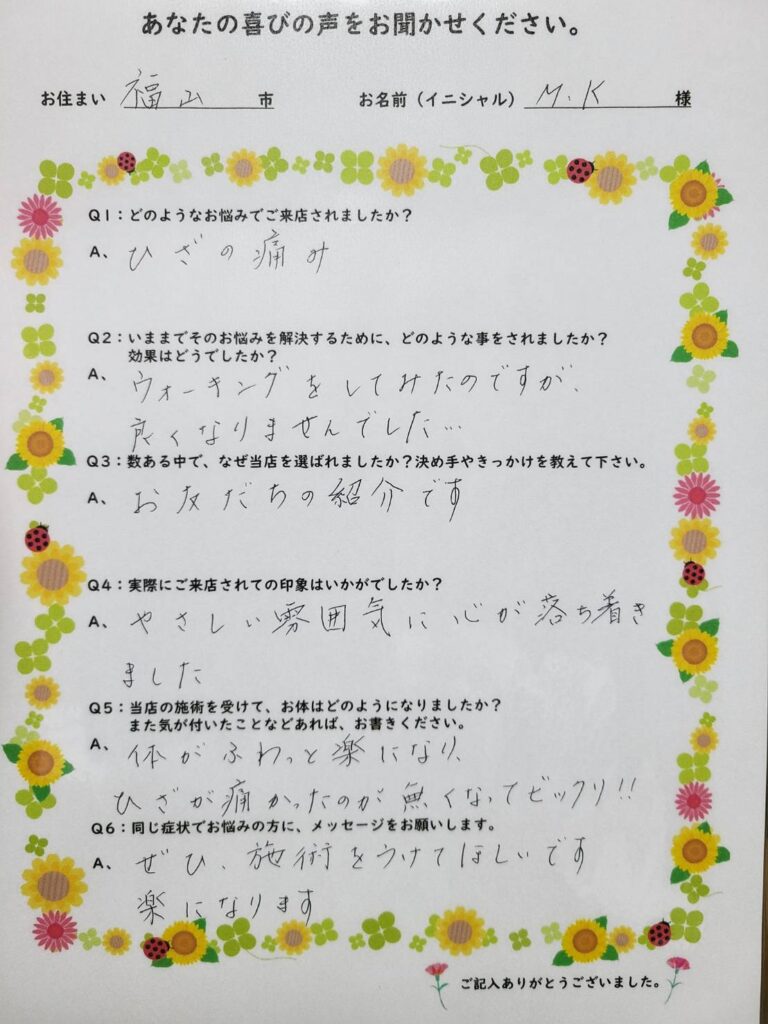 あなたの喜びの声をお聞かせください。
お住まい 福山 市 お名前（イニシャル） M.K 様
Q1：どのようなお悩みでご来店されましたか？
A、ひざの痛み
Q2：いままでそのお悩みを解決するために、どのような事をされましたか？
効果はどうでしたか？
A、ウォーキングをしてみたのですが、
良くなりませんでした…
Q3：数ある中で、なぜ当店を選ばれましたか？決め手やきっかけを教えて下さい。
A、お友だちの紹介です
Q4：実際にご来店されての印象はいかがでしたか？
A、やさしい雰囲気に心が落ち着き
ました
Q5：当店の施術を受けて、お体はどのようになりましたか？
また気が付いたことなどあれば、お書きください。
A、体がふわっと楽になり、
ひざが痛かったのが無くなってビックリ!!
Q6：同じ症状でお悩みの方に、メッセージをお願いします。
A、ぜひ、施術をうけてほしいです
楽になります
ご記入ありがとうございました。